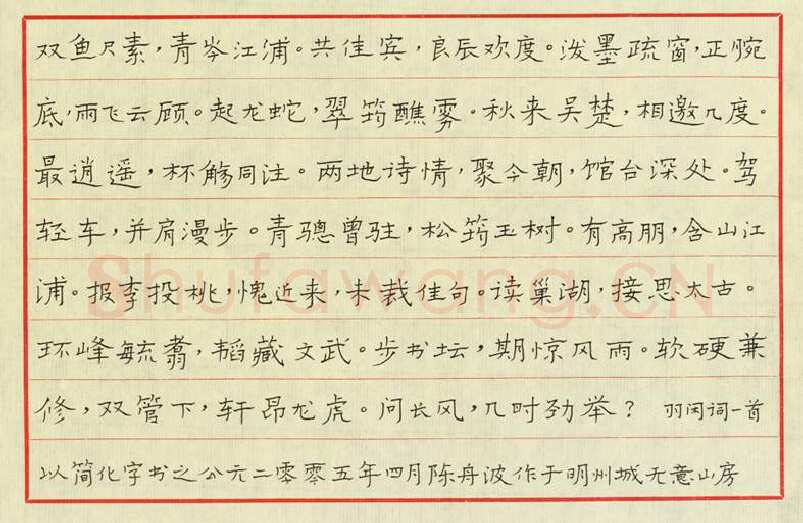 双鱼尺素，青岑江浦。共佳宾，良辰欢度。泼墨疏窗，正腕
底，雨飞云顾。起龙蛇，翠筠醮雾。秋来吴楚，相邀几度。
最逍遥，杯觞同注。两地诗情，聚今朝，馆台深处。驾
轻车，并肩漫步。青骢曾驻，松筠玉树。有高朋，含山江
浦。报李投桃，愧近来，未裁佳句。读巢湖，接思太古。
环峰毓翥，韬藏文武。步书坛，期惊风雨。软硬兼
修，双管下，轩昂龙虎。问长风，几时劲举？ 羽闲词一首
以简化字书之公元二零零五年四月陈舟波作于明州城无意山房
Shufawang.CN